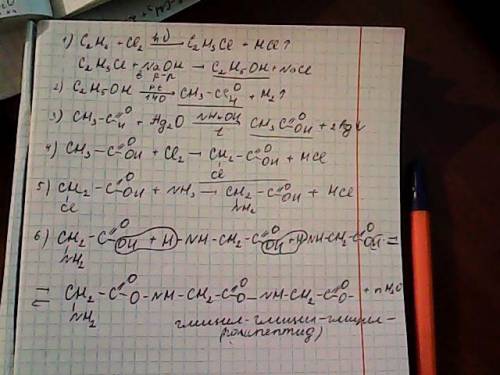 1) C₂H₆ + Cl₂ —hν→ C₂H₅Cl + HCl↑
C₂H₅Cl + NaOH → C₂H₅OH + NaCl
в р-р
2) C₂H₅OH —Pt, 140→ CH₃-C(=O)H + H₂↑
3) CH₃-C(=O)H + Ag₂O —NH₄OH, t→ CH₃C(=O)OH + 2Ag↓
4) CH₃-C(=O)OH + Cl₂ → CH₂(Cl)-C(=O)OH + HCl
5) CH₂(Cl)-C(=O)OH + NH₃ → CH₂(NH₂)-C(=O)OH + HCl
6) CH₂(NH₂)-C(=O)OH + H-NH-CH₂-C(=O)OH + H NH-CH₂-C(=O)OH =
= CH₂(NH₂)-C(=O)O-NH-CH₂-C(=O)O-NH-CH₂-C(=O)O- + nH₂O
глицил-глицил-глицил-
(полипептид)